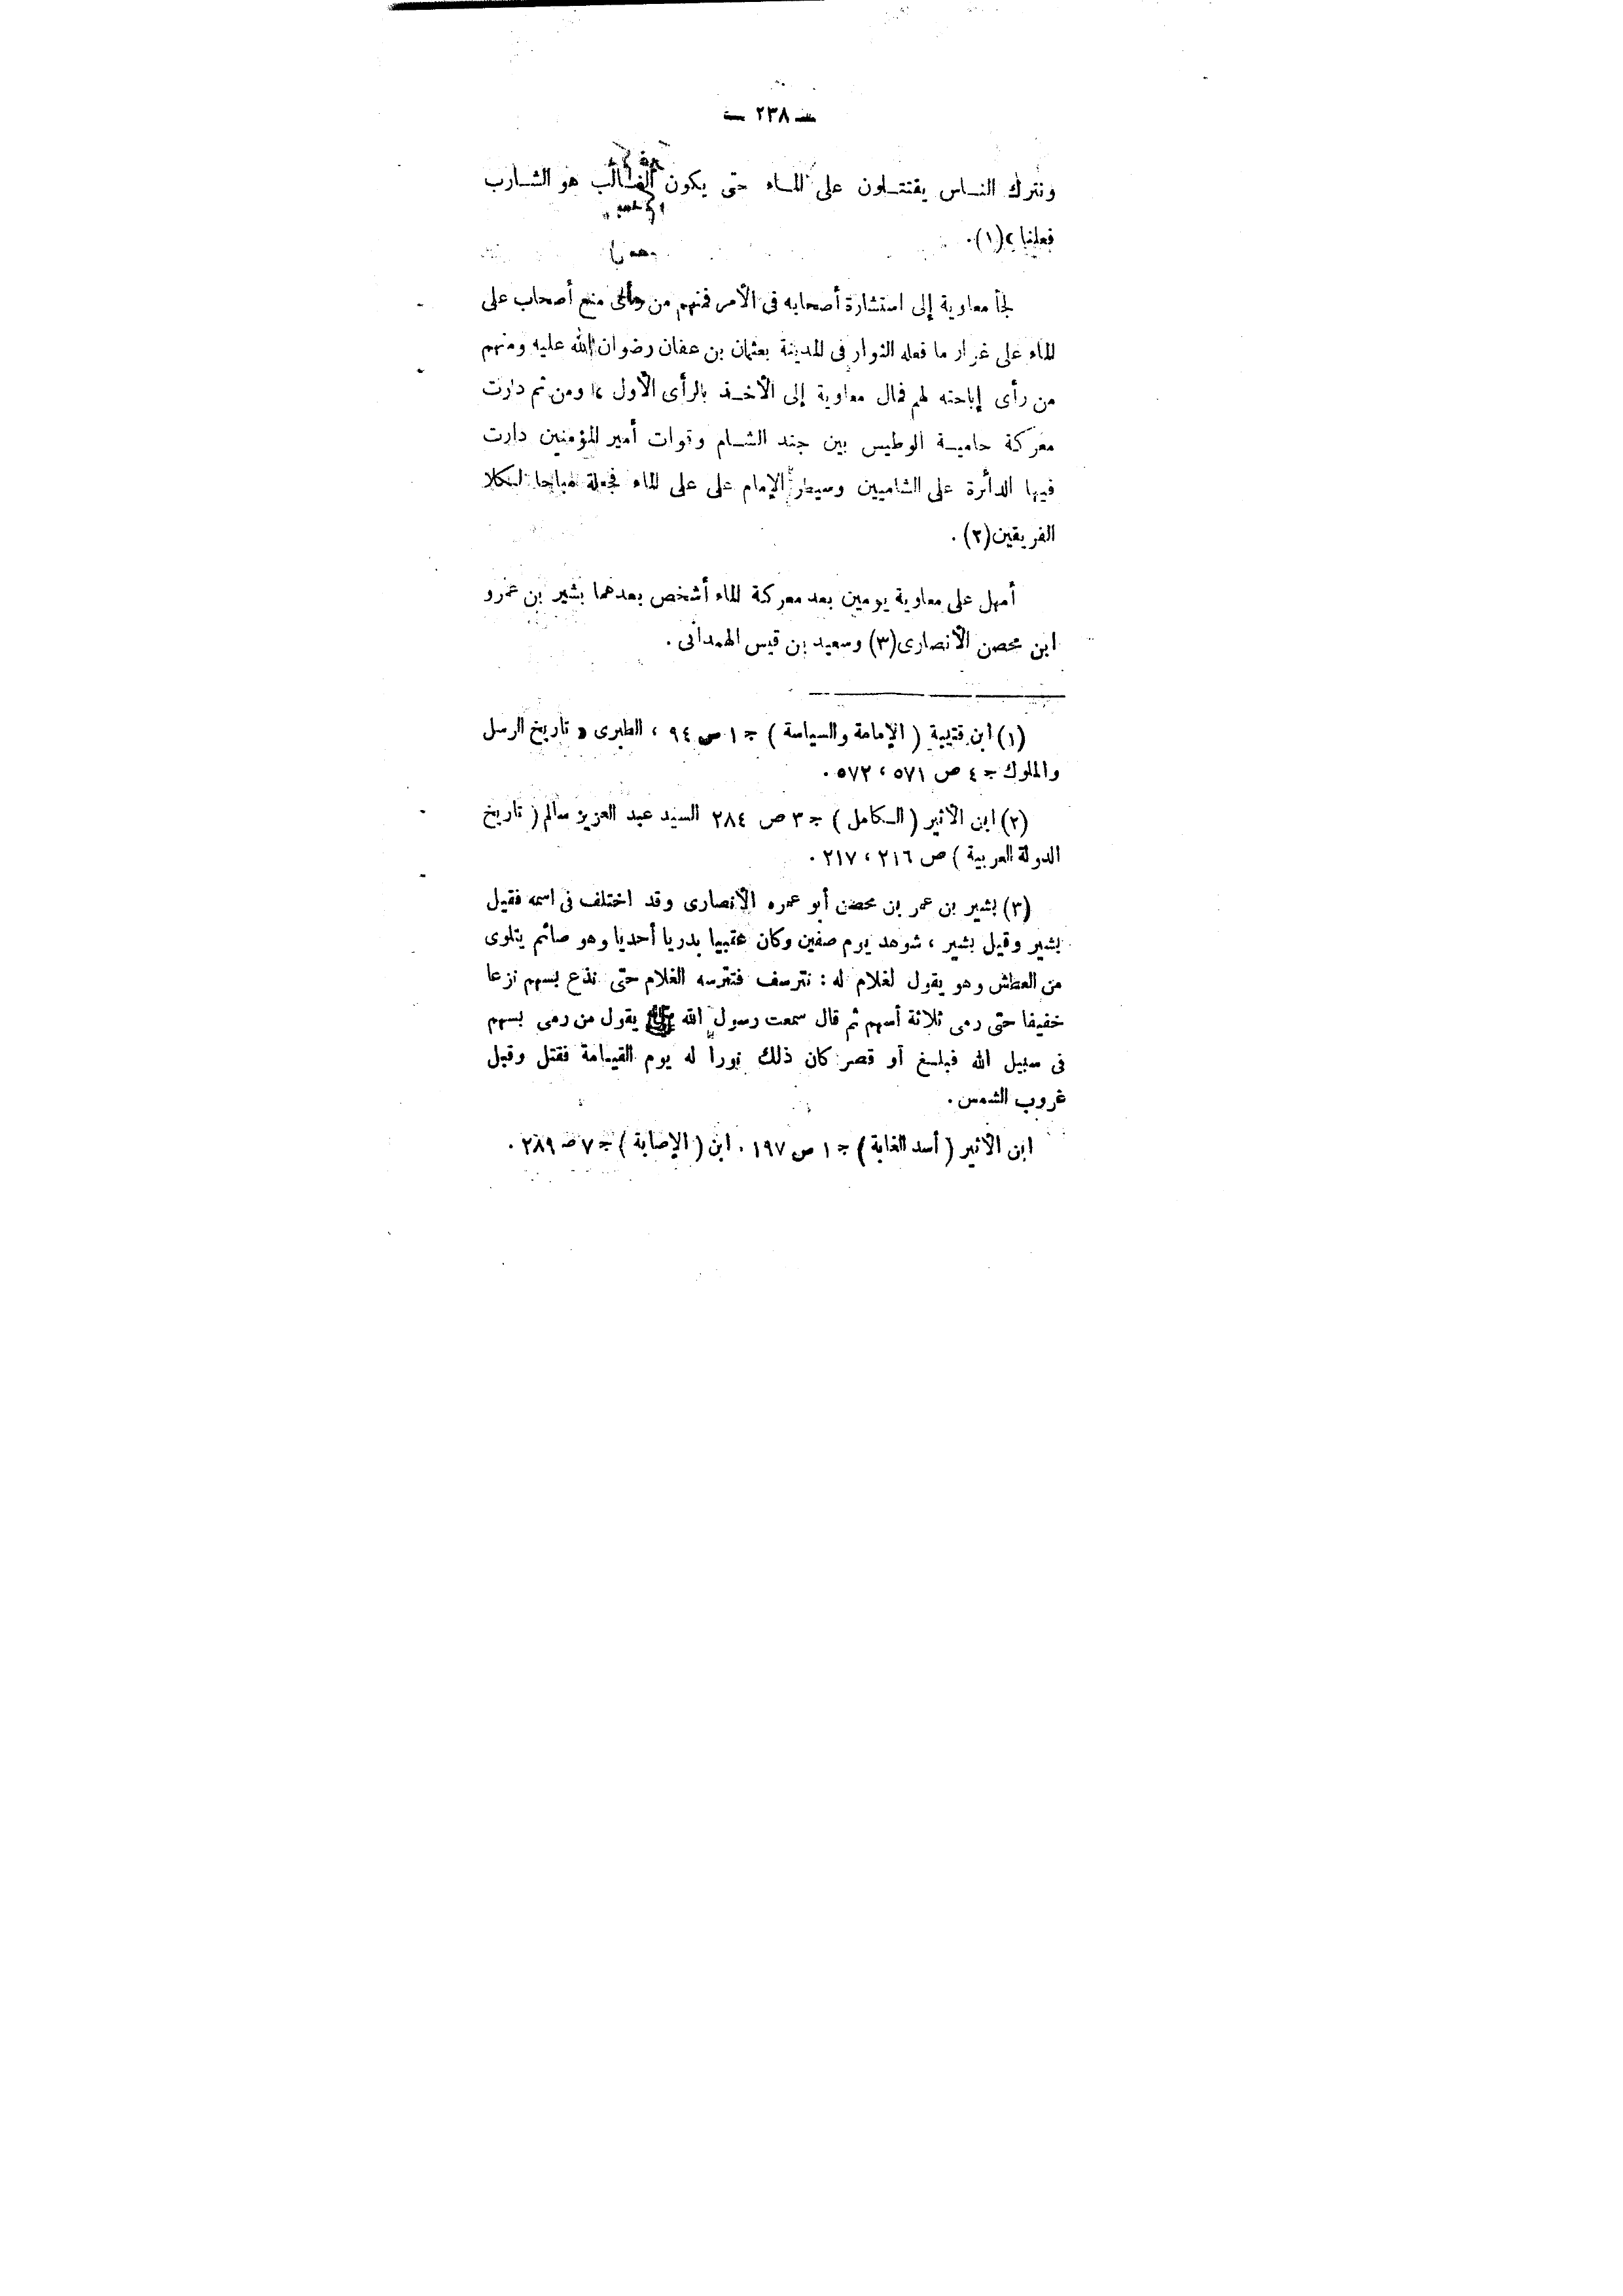 — ٢٣٨ —
ونترك النـاس يقتتـلون على المـاء حتى يكون الغـالب هو الشـارب
فعلنا » (١) .
لجأ معاوية إلى استشارة أصحابه فى الأمر فمنهم من رأى منع أصحاب على
الماء على غرار ما فعله الثوار فى المدينة بعثمان بن عفان رضوان الله عليه ومنهم
من رأى إباحته لهم فمال معاوية إلى الأخـذ بالرأى الأول ، ومن ثم دارت
معركة حاميـة الوطيس بين جند الشـام وقوات أمير المؤمنين دارت
فيها الدائرة على الشاميين وسيطر الإمام على على الماء فجعلة مباحا لكلا
الفريقين (٢) .
أمهل على معاوية يومين بعد معركة الماء أشخص بعدهما بشير بن عمرو
ابن محصن الأنصارى (٣) وسعيد بن قيس الهمدانى .
(١) ابن قتيبة ( الإمامة والسياسة ) ج ١ ص ٩٤ ، الطبرى « تاريخ الرسل
والملوك ج ٤ ص ٥٧١ ، ٥٧٢ .
(٢) ابن الأثير ( الكامل ) ج ٣ ص ٢٨٤ السيد عبد العزيز سالم ( تاريخ
الدولة العربية ) ص ٢١٦ ، ٢١٧ .
(٣) بشير بن عمر بن محصن أبو عمره الأنصارى وقد اختلف فى اسمه فقيل
بشير وقيل بشير ، شوهد يوم صفين وكان عقبيا بدريا أحديا وهو صائم يتلوى
من العطش وهو يقول لغلام له : نترسف فتترسه الغلام حتى نذع بسهم نزعا
خفيفا حتى رمى ثلاثة أسهم ثم قال سمعت رسول الله ﷺ يقول من رمى بسهم
فى سبيل الله فبلـغ أو قصر كان ذلك نوراً له يوم القيـامة فقتل وقبل
غروب الشمس .
ابن الأثير ( أسد الغابة ) ج ١ ص ١٩٧ . ابن ( الإصابة ) ج ٧ صـ ٢٨٩ .